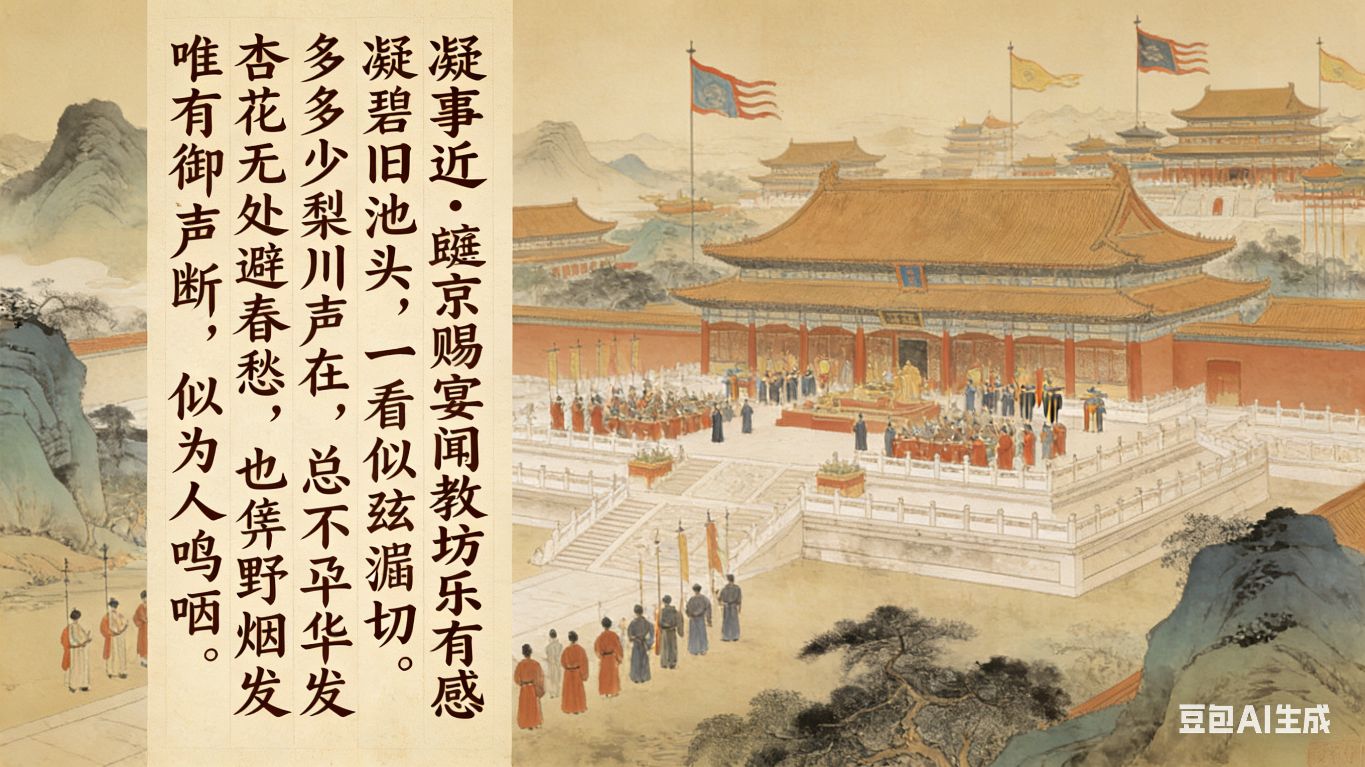 凝事近·京赐宴闻教坊乐有感
凝碧旧池头，一看似弦漏切。
多多少梨川声在，总不华发
杏花无处避春愁，也野烟发
唯有御声断，似为人鸣哂。
豆包AI生成